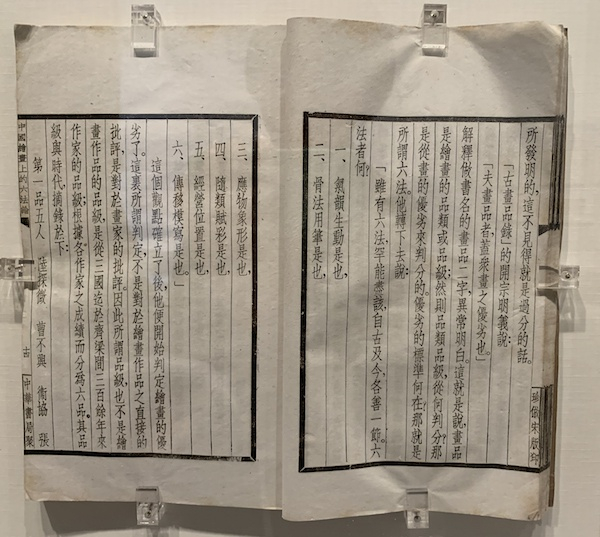 所發明的,這不見得就是過分的話。
「古畫品錄」的開宗明義說:
「夫畫品者,蓋衆畫之優劣也」
解釋做書名的畫品二字,異常明白。這就是說,畫品
是繪畫的品類或品級;然則品類品級,從何判分?那
是從畫的優劣來判分的。優劣的標準何在?那就是
所謂六法。他轉下去說:
「雖有六法,罕能盡該,自古及今,各善一節。六
法者何?
一、氣韻生動是也,
二、骨法用筆是也,
珍倣宋版印
三、應物象形是也,
四、隨類賦彩是也,
五、經營位置是也,
六、傳移模寫是也。」
這個觀點確立了後,他便開始判定繪畫的優
劣了。這裏所謂判定,不是對於繪畫作品之直接的
批評,是對於畫家的批評。因此所謂品級,也不是繪
畫作品的品級,是從三國迄於齊梁間三百餘年來
作家的品級,根據各作家之成績而分為六品。其品
級與時代,摘錄於下:
第一品五人 陸探微 曹不興 衛協 張
中國繪畫上的六法論
中華書局聚